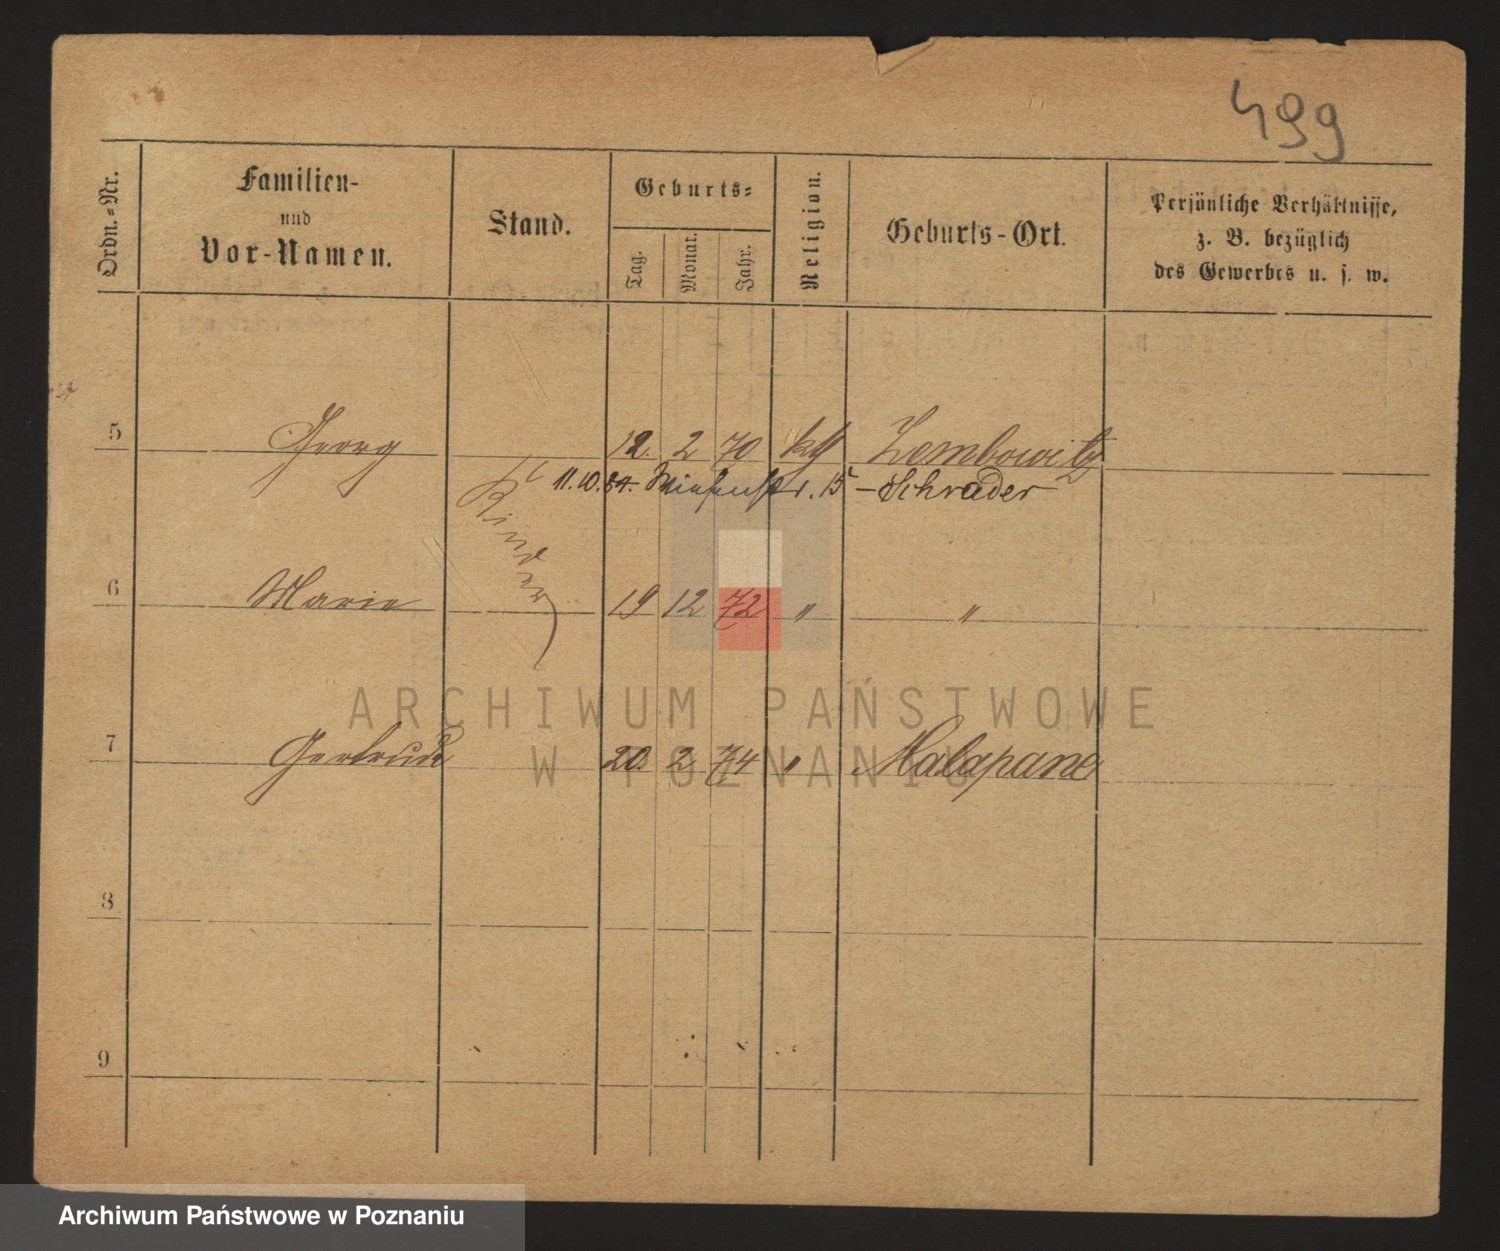 499
Ordn.-Nr.
Familien-
und
Vor-Namen.
Stand.
Geburts-
Tag.
Monat.
Jahr.
Religion.
Geburts-Ort.
Persönliche Verhältnisse,
z. B. bezüglich
des Gewerbes u. s. w.
5 Georg 12. 2 70 Zembowitz
11.10.84. Wiesenstr. 15 - Schrader
Kinder
6 Marie 19 12 72 " "
7 Gertrud 20. 2 74 " Malapane
8
9
ARCHIWUM PAŃSTWOWE
W POZNANIU
Archiwum Państwowe w Poznaniu